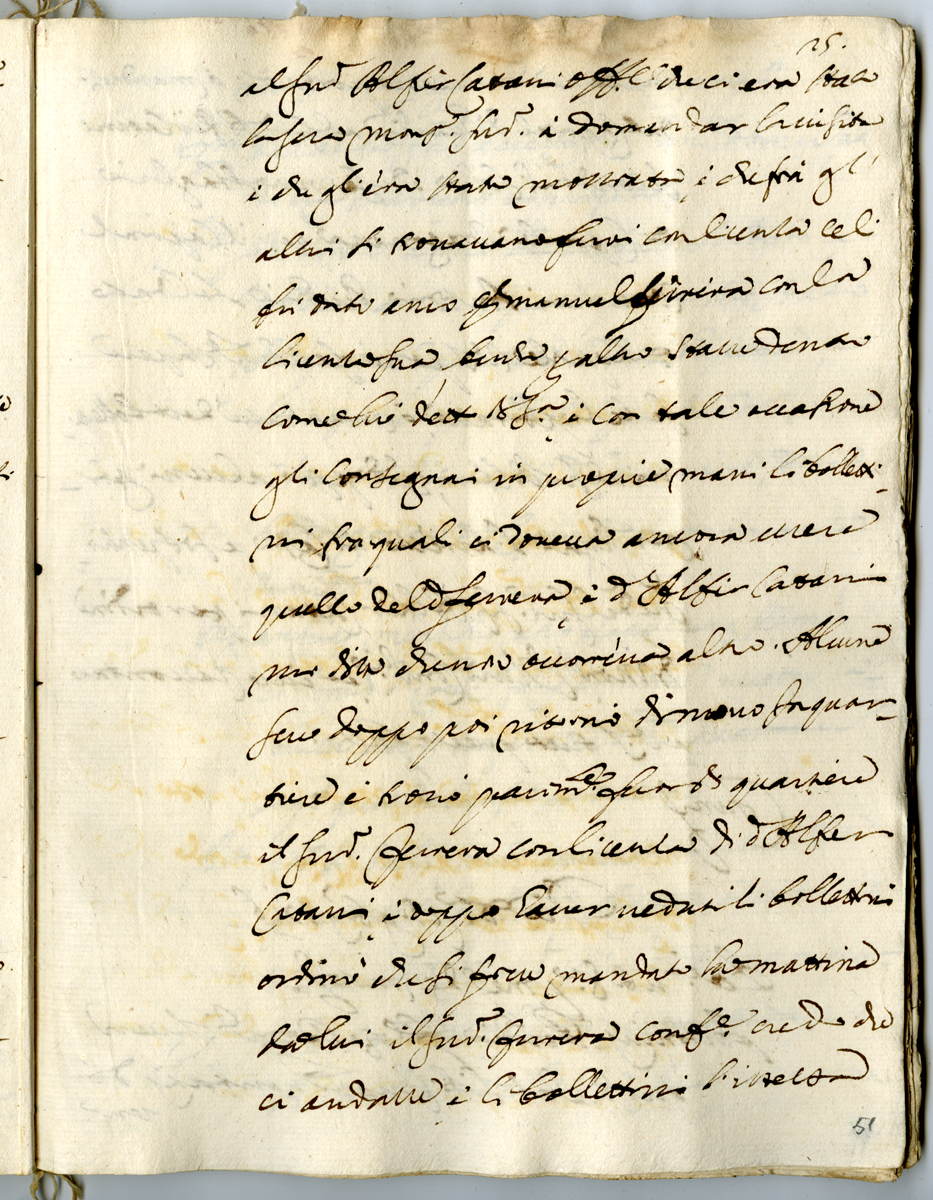 25.
al sud.º Alfier Catani Off.le che ci era stato
la sera Mons.r sud.º à domandar la visita
i che gl'era stata mostrata, i che frà gl'
altri si trovavano fuori con licenza e li
fù dato anco Emanuel Ferrera con la
licenza sua benche altro stasse dentro
come lui dett i con tale occasione
gli consegnai in proprie mani li bolletti-
ni frà quali ci doveva ancora essere
quello del d.º Ferrera, è d.º Alfier Catani
mi disse che non occorreva altro. Alcune
sere doppo poi ritornò di nuovo in quar-
tiere è trovò parim.te fuor di quartiere
il sud.º Ferrera con licenza di d.º Alfier
Catani, è doppo haver veduti li bollettini
ordinò che si fosse mandato la mattina
da lui il sud.º Ferrera conf.e credo che
ci andasse è li bollettini l'istessa
51